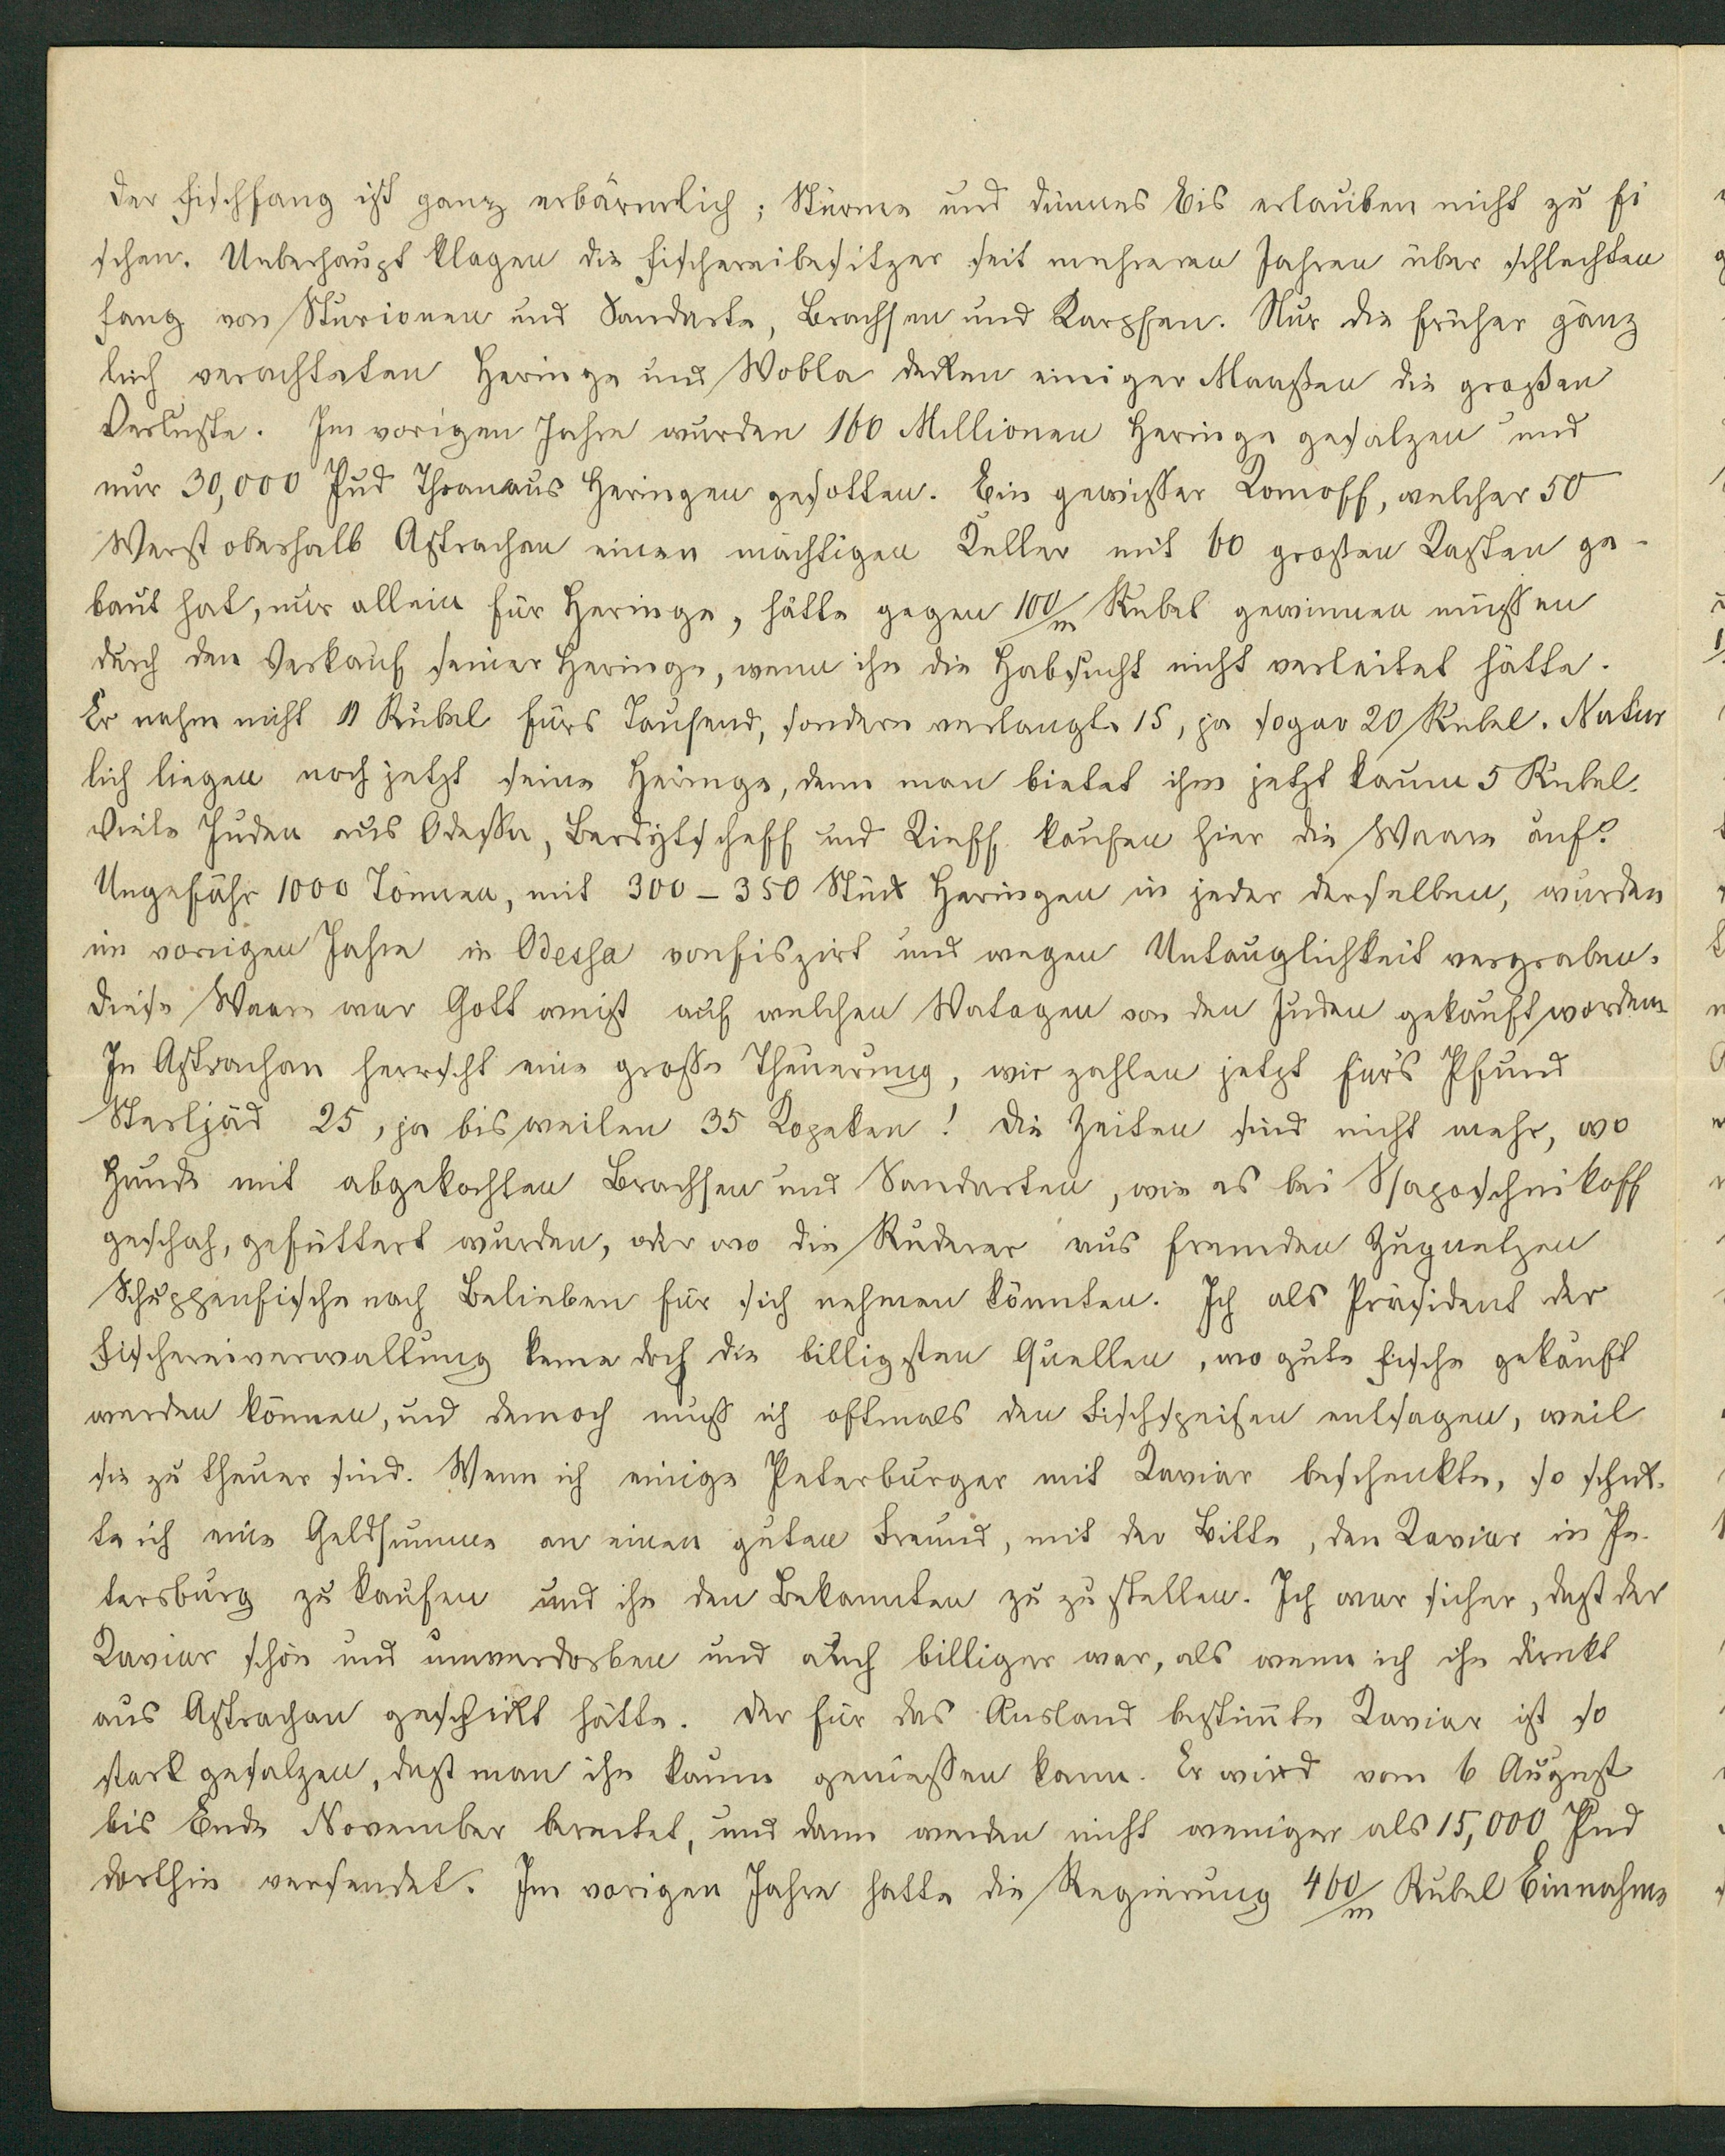 Der Fischfang ist ganz erbärmlich; Stürme und dünnes Eis erlauben nicht zu fi
schen. Ueberhaupt klagen die Fischereibesitzer seit mehreren Jahren über schlechten
Fang von Sturionen und Sandarte, Brachsen und Karpfen. Nur die früher gänz
lich verachteten Heringe und Wobla decken einiger Maaßen die großen
Verluste. Im vorigen Jahre wurden 160 Millionen Heringe gesalzen und
nur 30,000 Pud Thran aus Heringen gesotten. Ein gewisser Romoff, welcher 50
Werst oberhalb Astrachan einen mächtigen Keller mit 60 großen Kasten ge-
baut hat, nur allein für Heringe, hätte gegen 100/m Rubel gewinnen müssen
durch den Verkauf seiner Heringe, wenn ihn die Habsucht nicht verleitet hätte.
Er nahm nicht 11 Rubel fürs Tausend, sondern verlangte 15, ja sogar 20 Rubel. Natür
lich liegen noch jetzt seine Heringe, denn man bietet ihm jetzt kaum 5 Rubel.
Viele Juden aus Odessa, Berdytscheff und Kieff kaufen hier die Waare auf.
Ungefähr 1000 Tonnen, mit 300-350 Stück Heringen in jeder derselben, wurden
im vorigen Jahre in Odessa confiszirt und wegen Untauglichkeit vergraben.
Diese Waare war Gott weißt auf welchen Watagen von den Juden gekauft worden.
In Astrachan herrscht eine große Theuerung, wir zahlen jetzt für's Pfund
Sterljäd 25, ja bisweilen 35 Kopeken! Die Zeiten sind nicht mehr, wo
Hunde mit abgekochten Brachsen und Sandarten, wie es bei Ssaposchnikoff
geschah, gefüttert wurden, oder wo die Ruderer aus fremden Zugnetzen
Schuppenfische nach Belieben für sich nehmen könnten. Ich als Präsident der
Fischereiverwaltung kenne doch die billigsten Quellen, wo gute Fische gekauft
werden können, und dennoch muß ich oftmals den Fischspeisen entsagen, weil
sie zu theuer sind. Wenn ich einige Peterburger mit Kaviar beschenkte, so schik-
te ich eine Geldsumme an einen guten Freund, mit der Bitte, den Kaviar in Pe-
tersburg zu kaufen und ihn den Bekannten zu zu stellen. Ich war sicher, daßt der
Kaviar schön und unverdorben und auch billiger war, als wenn ich ihn direkt
aus Astrachan geschickt hätte. Der für das Ausland bestim̅te Kaviar ist so
stark gesalzen, daßt man ihn kaum genießen kann. Er wird vom 6 August
bis Ende November bereitet, und dann werden nicht weniger als 15,000 Pud
dorthin versendet. Im vorigen Jahre hatte die Regierung 460/m Rubel Einnahme